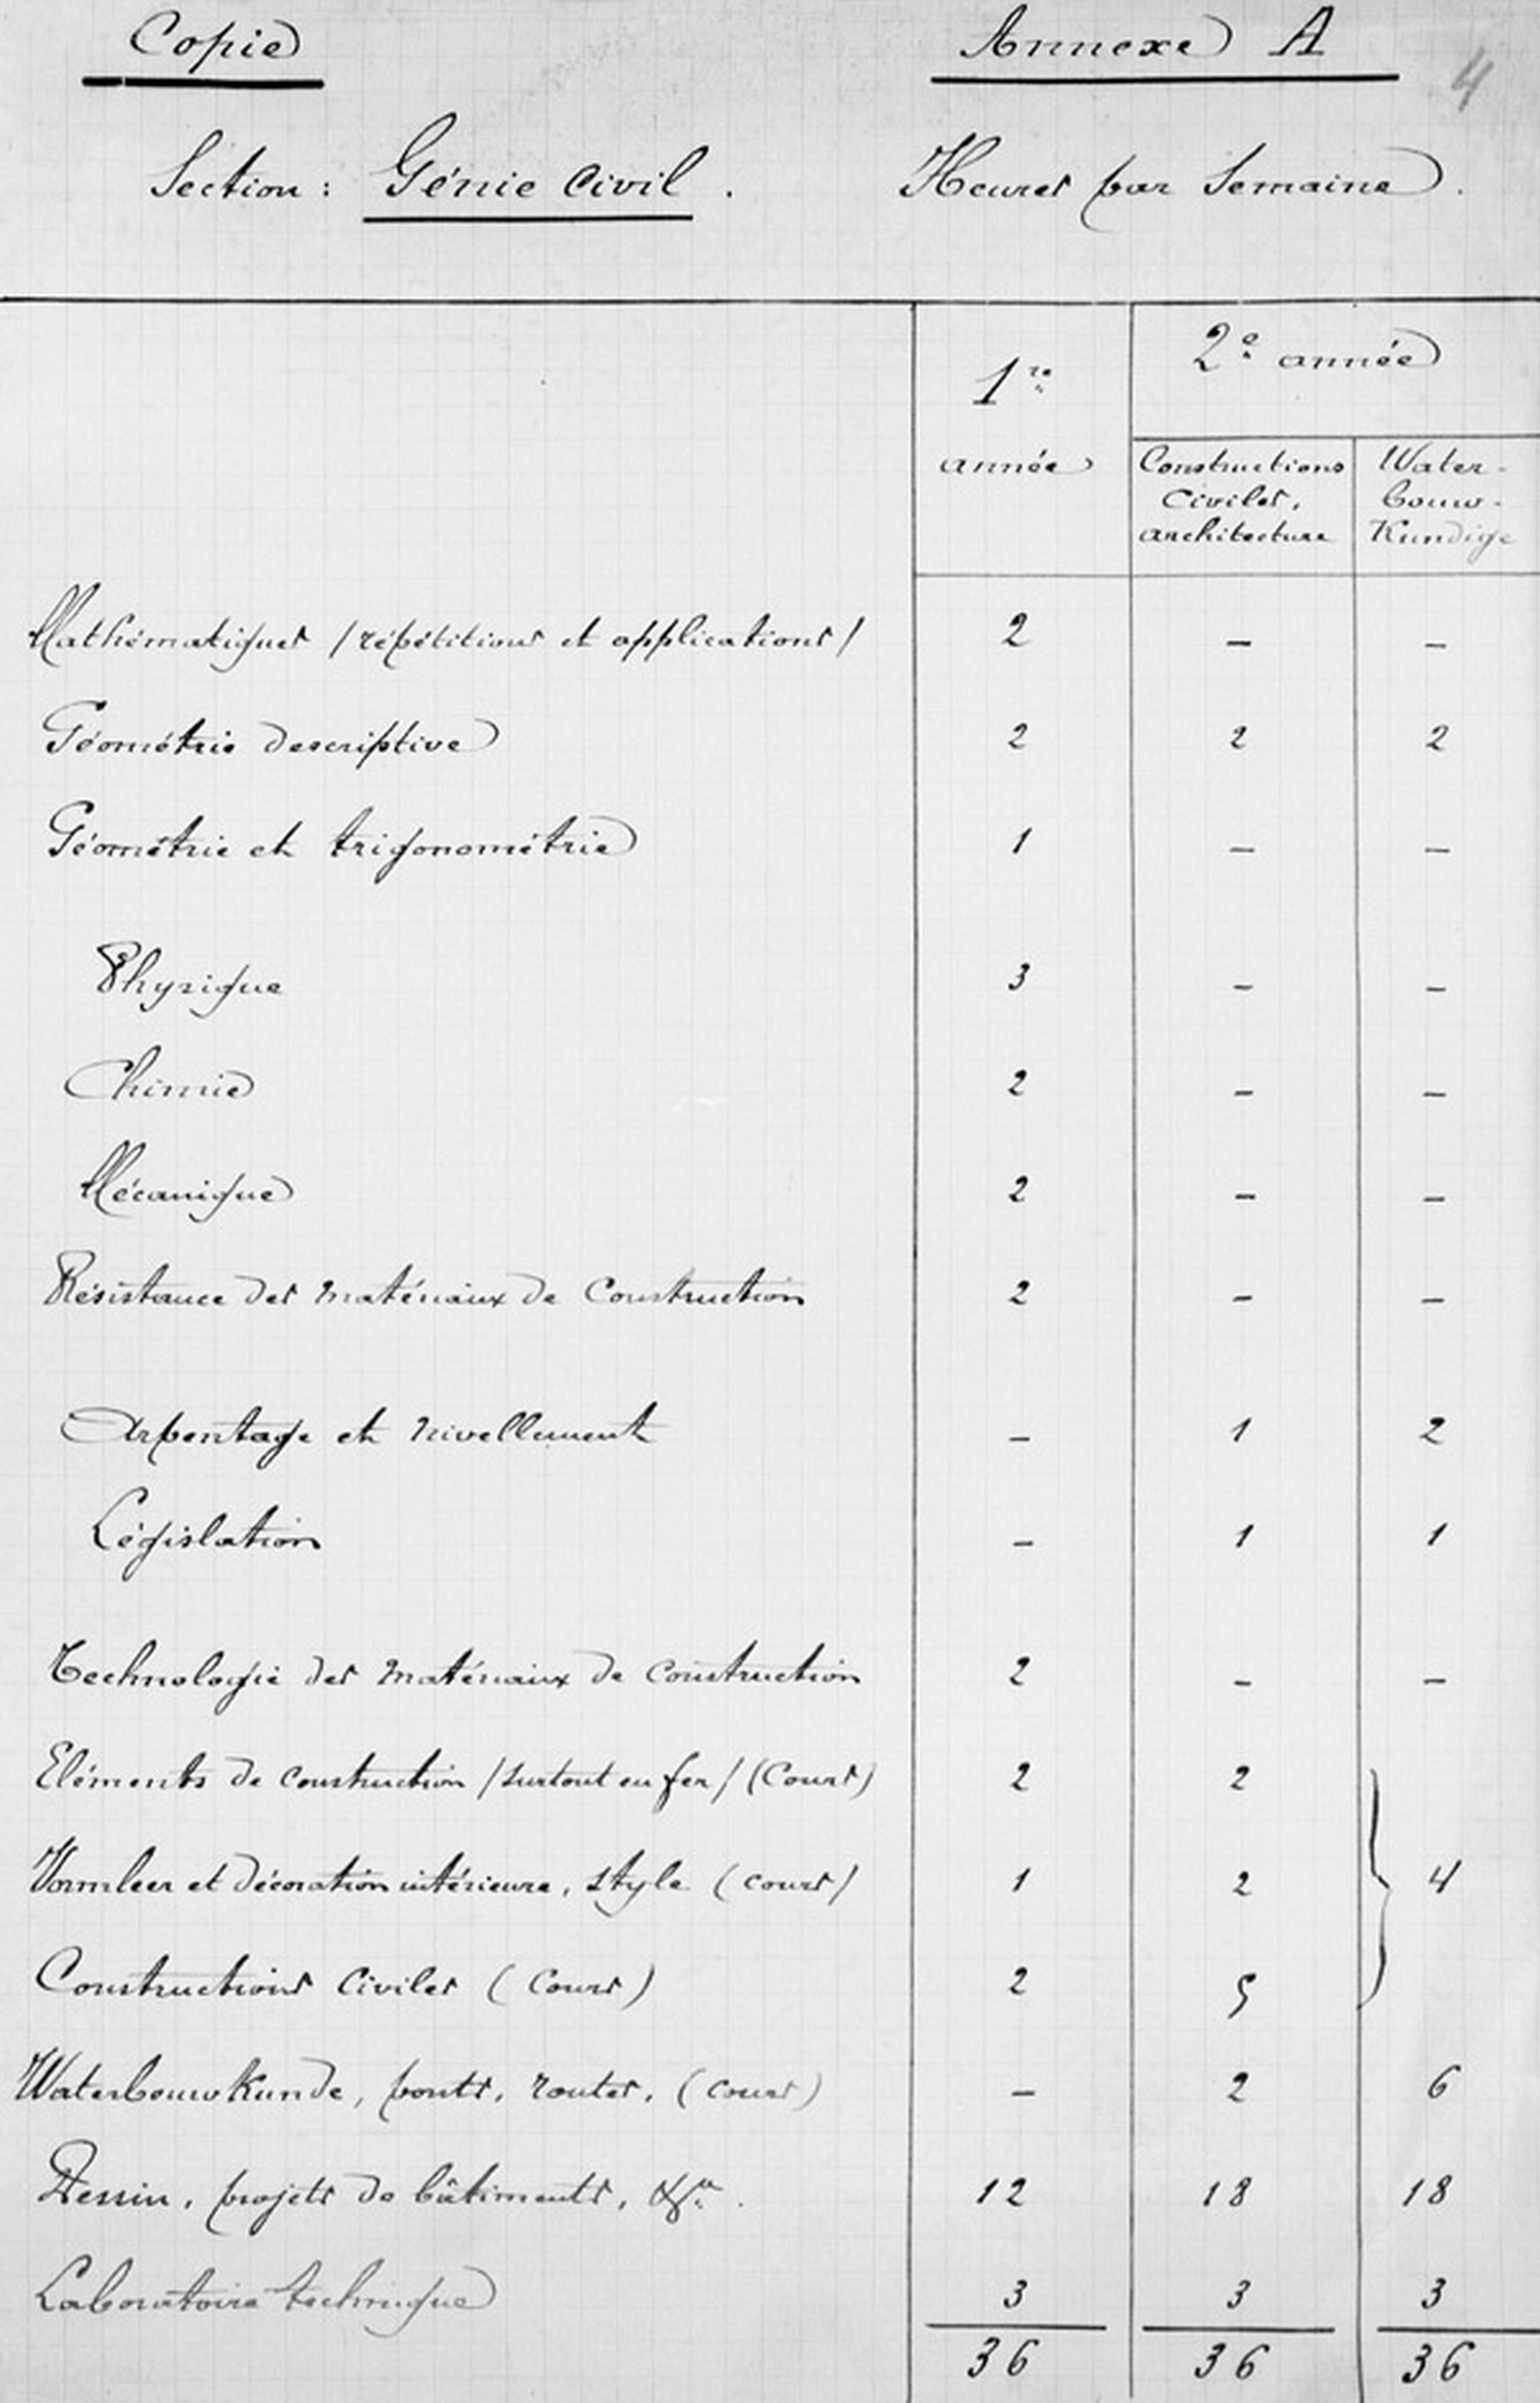 Copie Annexe A 4
Section : Génie Civil . Heures par Semaine .
1re année
2e année
Constructions Civiles, architecture
Water-bouw-Kundige
Mathématiques / répétitions et applications / 2 – –
Géométrie descriptive 2 2 2
Géométrie et trigonométrie 1 – –
Physique 3 – –
Chimie 2 – –
Mécanique 2 – –
Résistance des matériaux de Construction 2 – –
Arpentage et nivellement – 1 2
Législation – 1 1
Technologie des matériaux de construction 2 – –
Eléments de construction / surtout en fer / (Cours) 2 2
Vormleer et décoration intérieure, style ( cours / 1 2 } 4
Constructions Civiles ( Cours ) 2 5
Waterbouwkunde, ponts, routes, ( cours ) – 2 6
Dessin, projets de bâtiments, &a. 12 18 18
Laboratoire technique 3 3 3
36 36 36